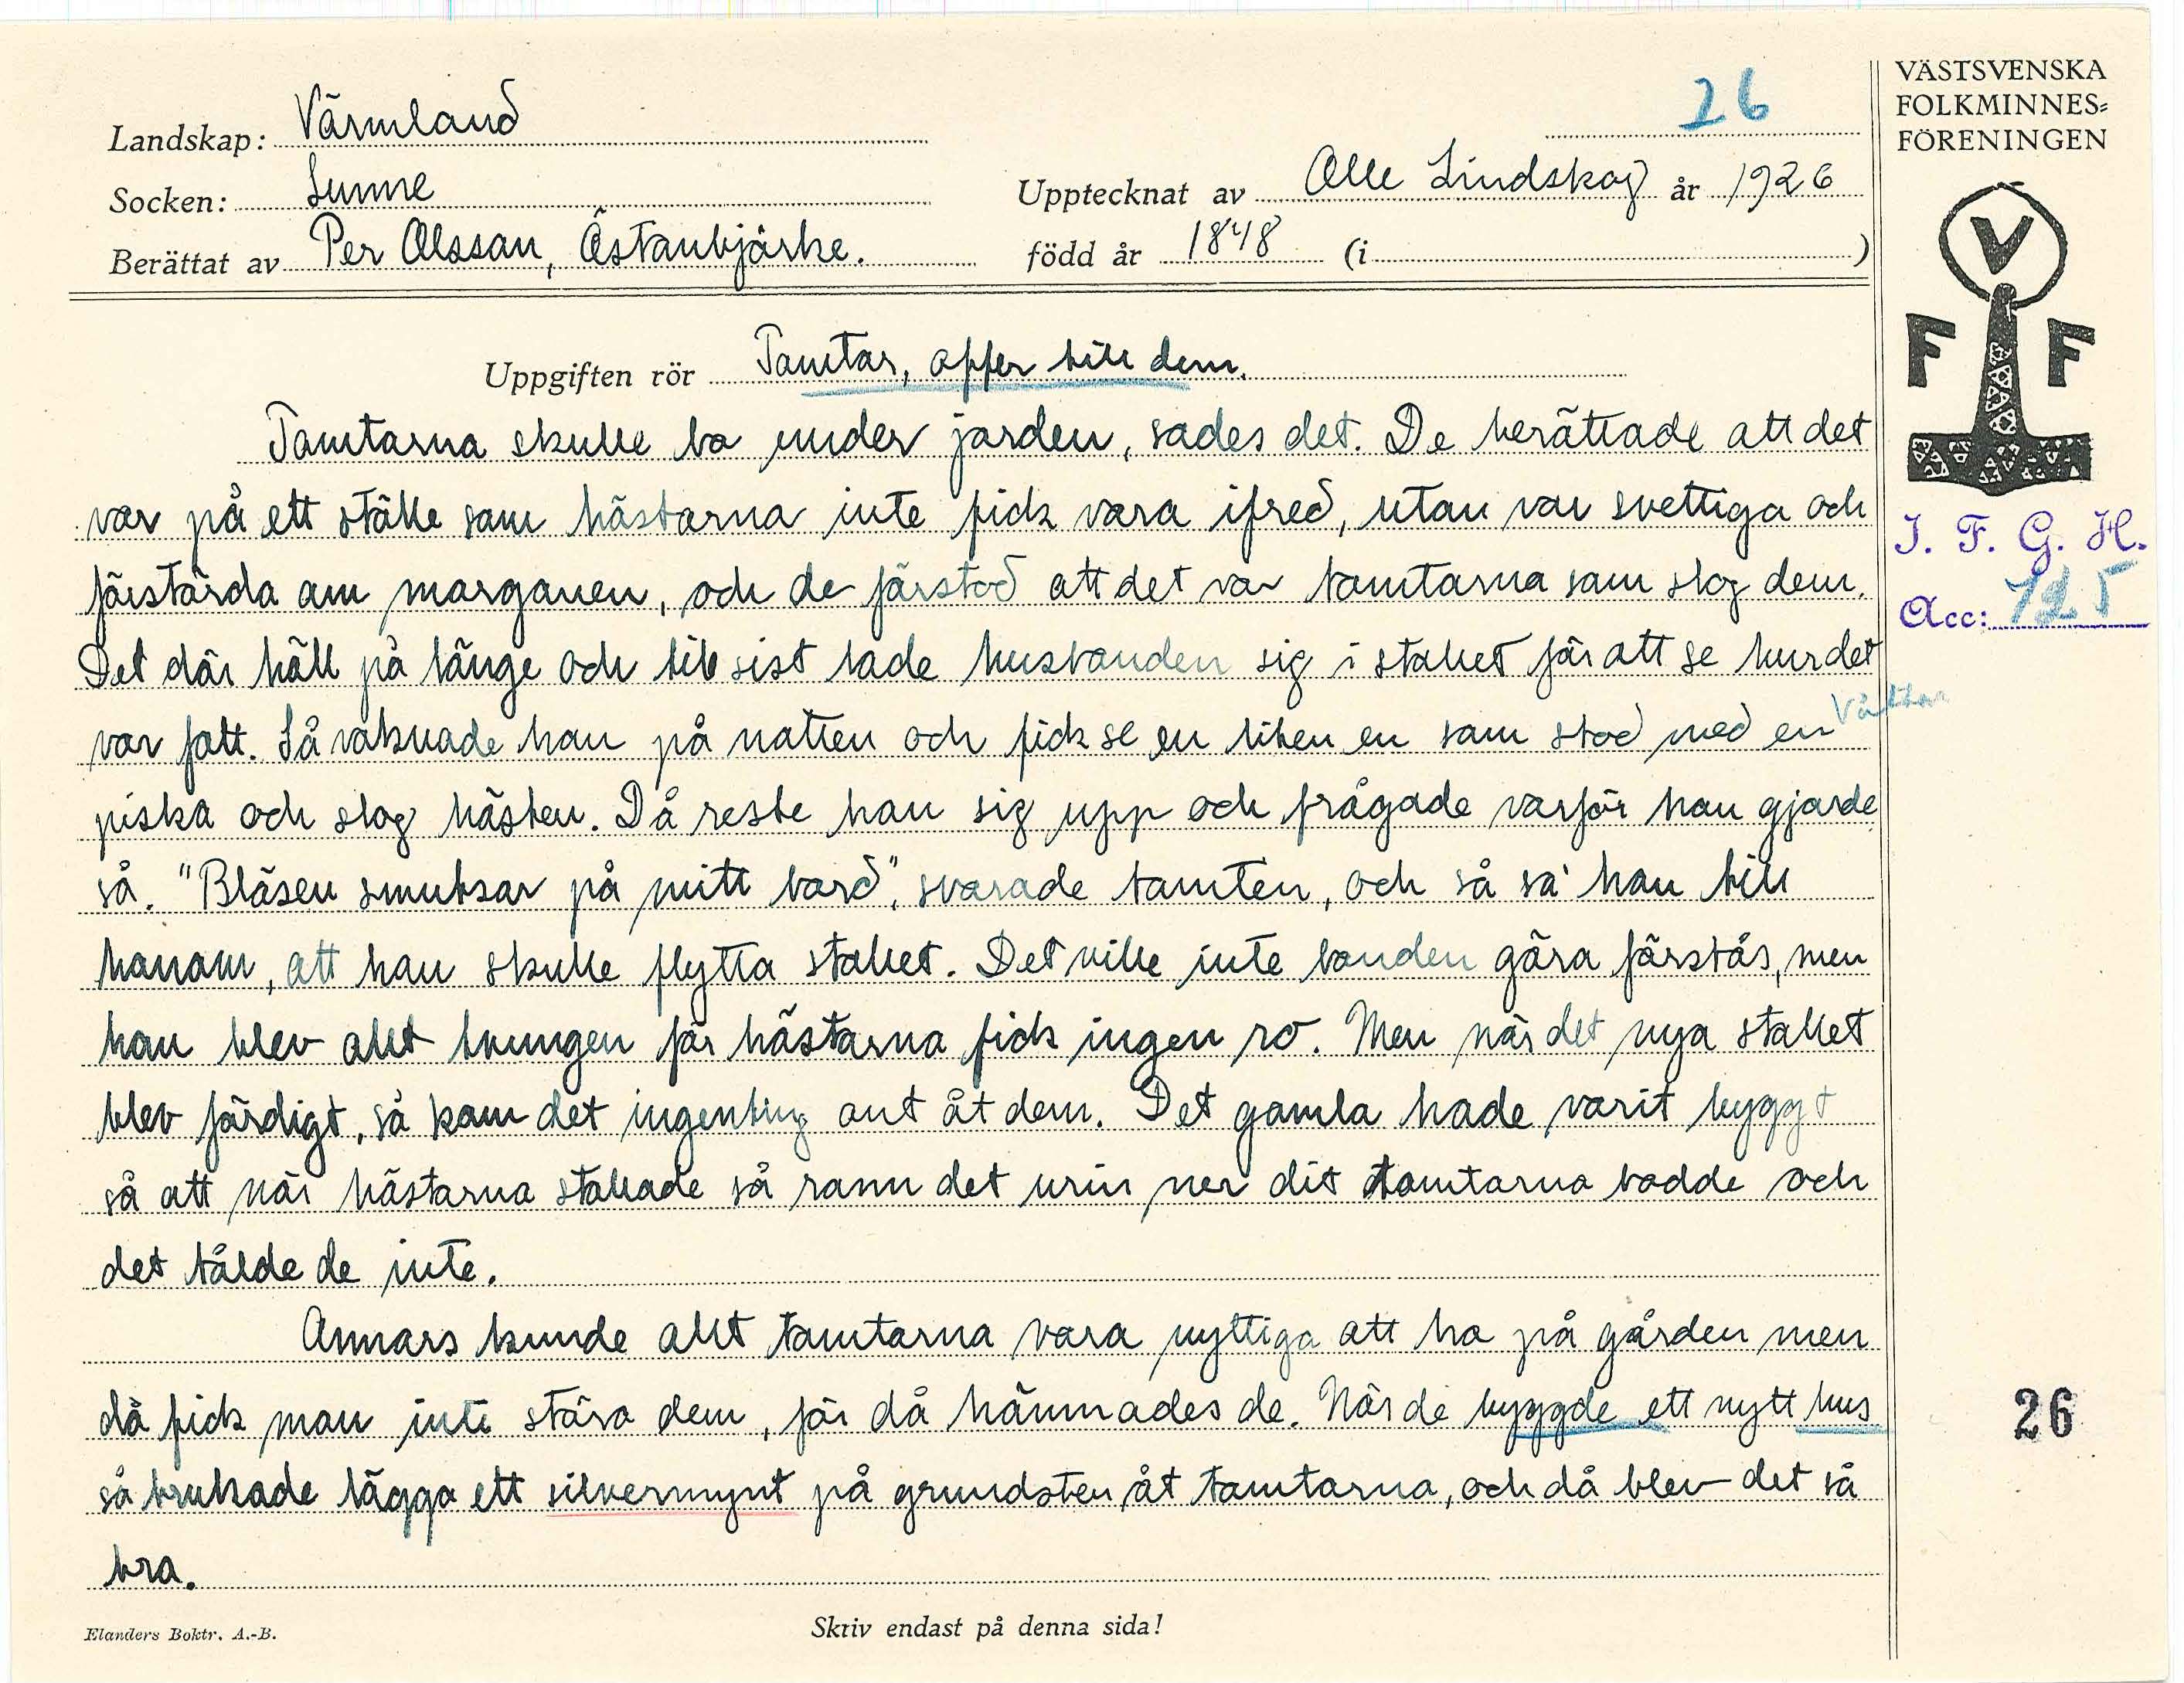 VÄSTSVENSKA
FOLKMINNES-
FÖRENINGEN
26
Landskap: Värmland
Socken: Sunne
Upptecknat av Olle Lindskog år 1926
Berättat av Per Olsson, Östanbjörke. född år 1848 (i )
V
F F
I. F. G. H.
Acc: 725
Uppgiften rör Tomtar, offer till dem.
Tomtarna skulle bo under jorden, sades det. De berättade att det
var på ett ställe som hästarna inte fick vara ifred, utan var svettiga och
förstörda om morgonen, och de förstod att det var tomtarna som slog dem.
Det där höll på länge och till sist lade husbonden sig i stallet för att se hur det
var fatt. Så vaknade han på natten och fick se en liten en som stod med en
piska och slog hästen. Då reste han sig upp och frågade varför han gjorde
så. "Bläsen smutsar på mitt bord", svarade tomten, och så sa' han till
honom, att han skulle flytta stallet. Det ville inte bonden göra förstås, men
han blev allt tvungen för hästarna fick ingen ro. Men när det nya stallet
blev färdigt, så kom det ingenting ont åt dem. Det gamla hade varit byggt
så att när hästarna stallade så rann det urin ner dit tomtarna bodde och
det tålde de inte.
Annars kunde allt tomtarna vara nyttiga att ha på gården men
då fick man inte störa dem, för då hämnades de. När de byggde ett nytt hus
så brukade lägga ett silvermynt på grundsten åt tomtarna, och då blev det så
bra.
26
Elanders Boktr. A.-B.
Skriv endast på denna sida!